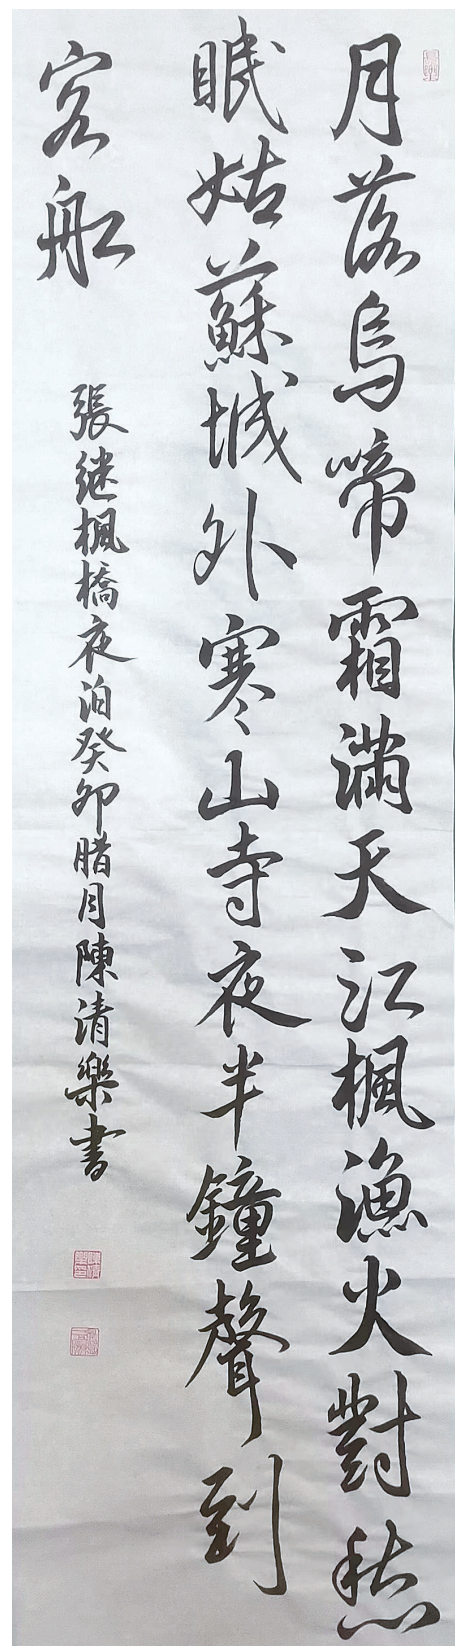 月落烏啼霜滿天江楓漁火對愁
眠姑蘇城外寒山寺夜半鐘聲到
客船
張继楓橋夜泊癸卯腊月陳清樂書